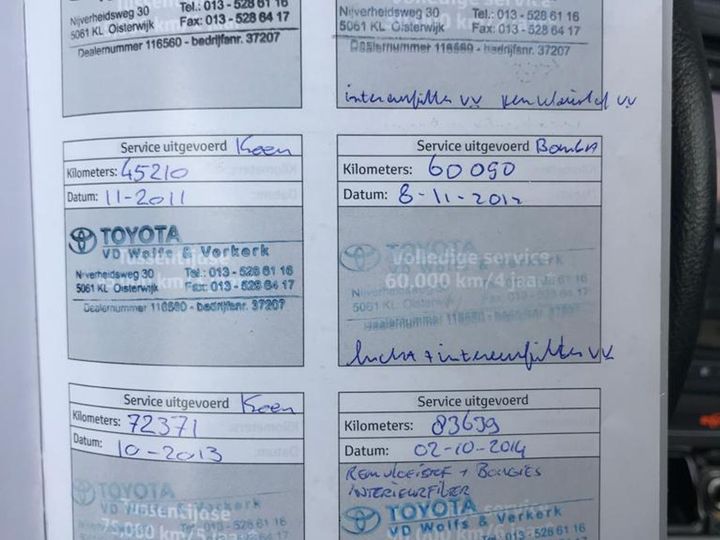 Nijverheidsweg 30 Tel.: 013 - 528 61 16
5061 KL Oisterwijk Fax: 013 - 528 64 17
Dealernummer 116560 - bedrijfsnr. 37207
Nijverheidsweg 30 Tel.: 013 - 528 61 16
5061 KL Oisterwijk Fax: 013 - 528 64 17
Dealernummer 116560 - bedrijfsnr. 37207
interieurfilter VV Remvloeistof VV
Service uitgevoerd Koen
Kilometers: 45210
Datum: 11-2011
TOYOTA
VD Wolfs & Verkerk
Tussentijdse
Nijverheidsweg 30 Tel.: 013 - 528 61 16
5061 KL Oisterwijk Fax: 013 - 528 64 17
Dealernummer 116560 - bedrijfsnr. 37207
Service uitgevoerd
Kilometers: 60090
Datum: 8-11-2012
TOYOTA
volledige service
60.000 km/4 jaar
Dealernummer 116560 - bedrijfsnr. 37207
lucht + interieurfilter VV
Service uitgevoerd Koen
Kilometers: 72371
Datum: 10-2013
TOYOTA
VD Wolfs & Verkerk
Tussentijdse
75.000 km/5 jaar
Tel.: 013 - 528 61 16
Service uitgevoerd
Kilometers: 83639
Datum: 02-10-2014
REMVLOEISTOF + BOUGIES
INTERIEURFILTER
TOYOTA
VD Wolfs & Verkerk